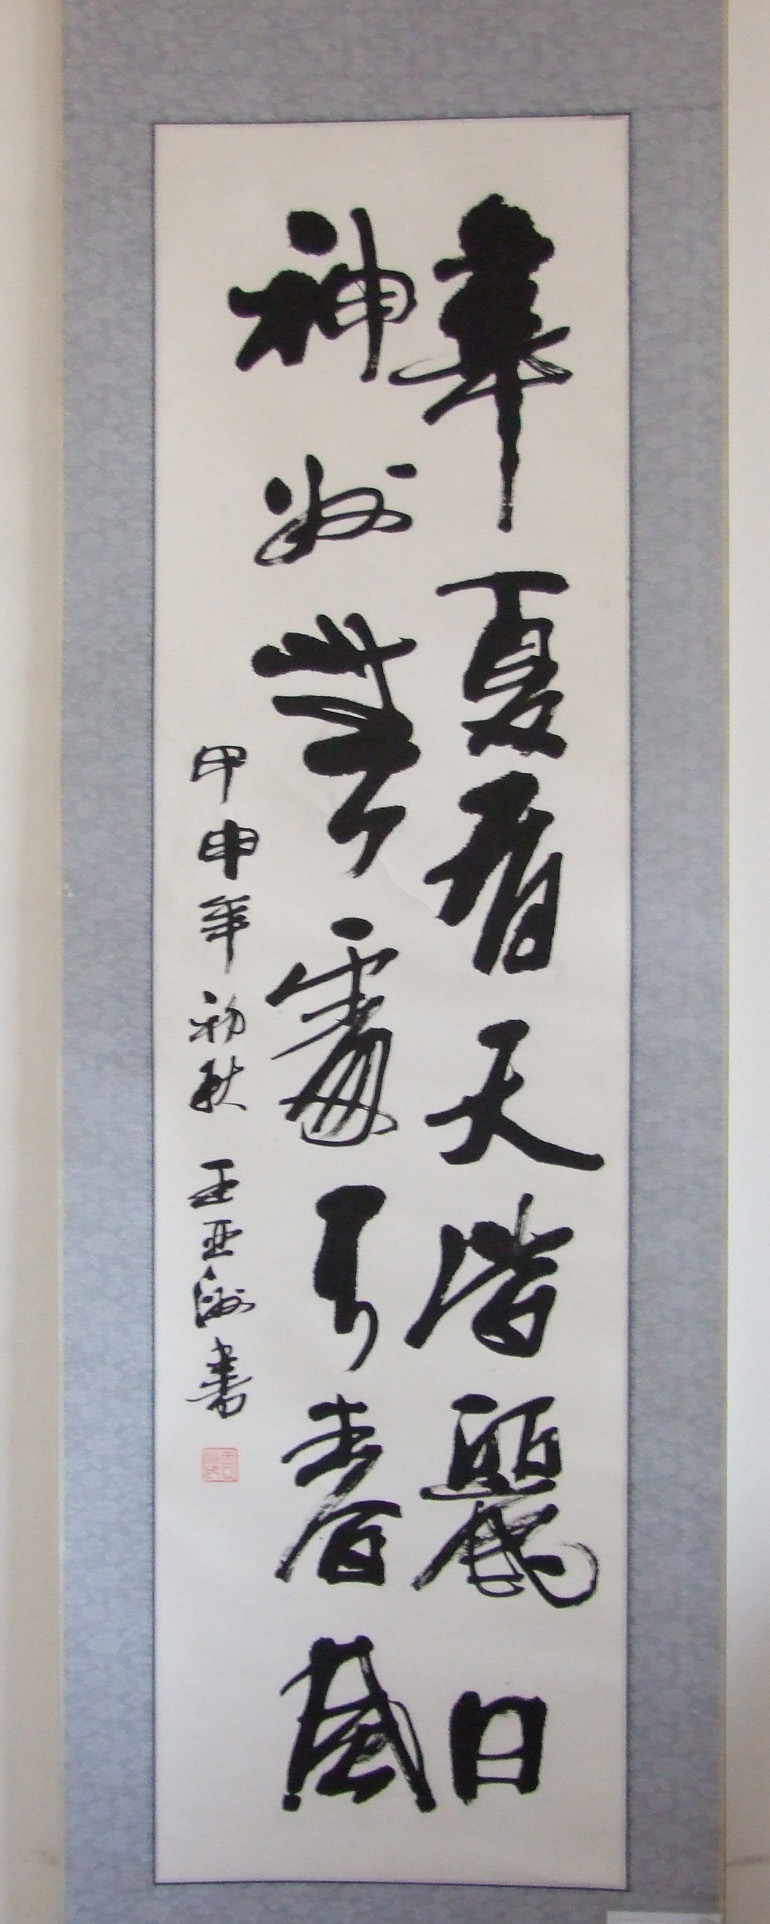 華夏有天皆麗日
神州無處不春風
甲申年初秋 王亚洲書